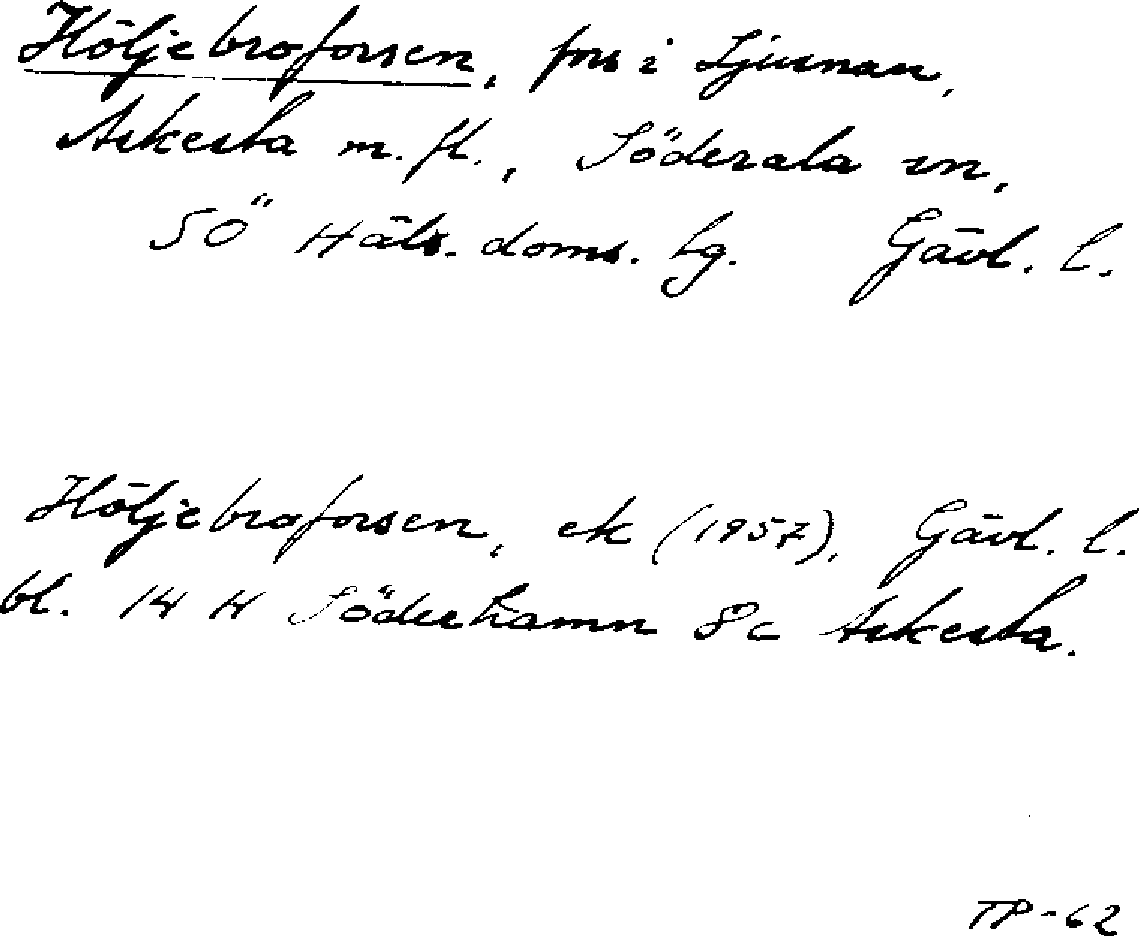 Höljebroforsen, fors i Ljusnan,
Askesta m. fl., Söderala sn,
SÖ Häls. doms. lg. Gävl. l.
Höljebroforsen, ek (1957), Gävl. l.
bl. 14 H Söderhamn 8c Askesta.
TP-62